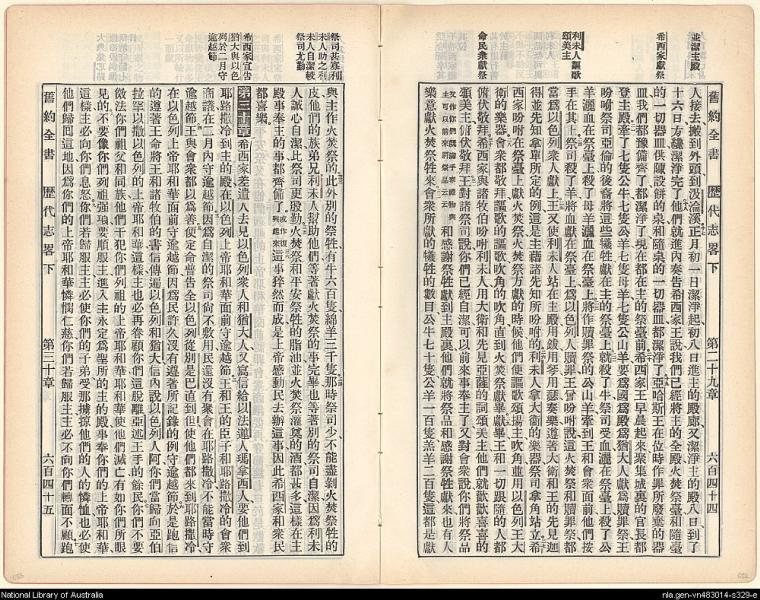 並潔主殿
希西家獻祭
利未人謳歌
頌美主
命民衆獻祭
舊約全書 歷代志畧下 第二十九章 六百四十四
人接去搬到外頭到汲淪溪正月初一日潔淨起初八日進主的殿廊又潔淨主的殿八日到了
十六日方纔潔淨完了他們就進內奏告希西家王說我們已經將主的全殿火焚祭臺和隨臺
的一切器皿供陳設餅的桌和隨桌的一切器皿都潔淨了亞哈斯王在位時作罪所廢棄的器
皿我們都豫備齊了都潔淨了現在都在主的祭臺前希西家王早晨起來聚集城裏的官長都
登主殿牽了七隻公牛七隻公羊七隻母羊七隻公山羊要爲國爲殿爲猶大人獻爲贖罪祭王
吩咐祭司亞倫的後裔將這些犧牲獻在主的祭臺上就殺了牛祭司受血灑在祭臺上殺了公
羊灑血在祭臺上殺了母羊灑血在祭臺上將贖罪祭的公山羊牽到王和會衆面前他們按
手在其上祭司殺了羊將血獻在祭臺上爲以色列人贖罪王曾吩咐說這火焚祭和贖罪祭都
當爲以色列衆人獻上王又使利未人站在主殿用鈸用琴用瑟奏樂遵著大衛和王的先見迦
得並先知拿單所定的例這是主藉諸先知所吩咐的利未人拿大衛的樂器祭司拿角站立希
西家吩咐在祭臺上獻火焚祭火焚祭方獻的時候他們便謳歌頌揚主吹角並用以色列王大
衛的樂器會衆都敬拜謳歌的謳歌吹角的吹角直到火焚祭獻畢獻畢王和一切跟隨的人都
俯伏敬拜希西家與諸牧伯吩咐利未人用大衛和先見亞薩的詞頌美主他們就歡歡喜喜的
頌美主俯伏敬拜王對諸祭司說你們已經自潔可以前來事奉主了又對會衆說你們將祭品
和感謝祭牲獻到主殿裏他們就將祭品和感謝祭牲獻來也有人
樂意獻火焚祭牲來會衆所獻的犧牲的數目公牛七十隻公羊一百隻羔羊二百隻這都是獻
祭司甚寡利
未人助之利
未人自潔較
祭司尤勤
希西家宣告
猶大與以色
列於二月守
逾越節
與主作火焚祭的此外別的祭牲有牛六百隻綿羊三千隻那時祭司少不能盡剝火焚祭牲的
皮他們的族弟兄利未人幫助他們等著獻火焚祭的事完畢也等著別的祭司自潔因爲利未
人誠心自潔比祭司更殷勤火焚祭和平安祭牲的脂油並火焚祭灌奠的酒都甚多這樣在主
殿事奉主的事都齊備了這事猝然而成是上帝感動民去辦這事因此希西家和衆民
都喜樂
第三十章希西家差遣人去見以色列衆人和猶大人又寫信給以法蓮人瑪拿西人要他們到
耶路撒冷到主的殿在以色列上帝耶和華面前守逾越節王和王的臣子和耶路撒冷的會衆
商議在二月內守逾越節因爲自潔的祭司尚不敷用民還沒有衆會在耶路撒冷不能當時守
逾越節王與會衆都以爲善便定命普告全以色列從別是巴直到但使他們都來到耶路撒冷
在以色列上帝耶和華面前守逾越節因爲民許久沒有遵著所記錄的例守逾越節於是跑信
的遵著王命將王和諸牧伯的書信傳遍以色列和猶大信內說以色列人阿你們當歸向亞伯
拉罕以撒以色列的上帝耶和華這樣主也必再眷顧你們這脫離亞述王手的餘民你們不要
倣法你們祖父和同族他們干犯你們列祖的上帝耶和華耶和華使他們滅亡有如你們所眼
見的不要像你們列祖强項要順服主進入主永定爲聖所的主的殿事奉你們的上帝耶和華
這樣主必向你們息怒你們若歸服主主必使你們的弟兄子弟受那擄掠他們的人的憐恤也必使
他們歸囘這地因爲你們的上帝耶和華憐憫仁慈你們若歸服主主必不向你們轉面不顧跑
舊約全書 歷代志畧下 第三十章 六百四十五
National Library of Australia
nla.gen-vn483014-s329-e